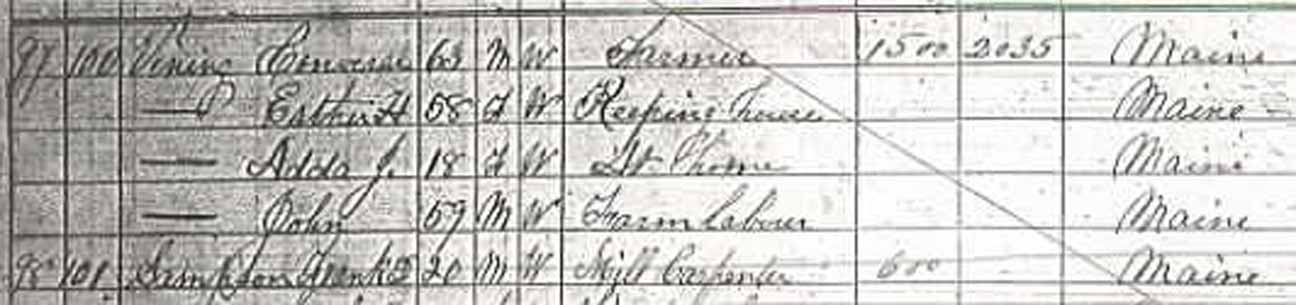 97 100 Vining Converse 63 M W Farmer 1500 2035 Maine
— Esther H 58 F W Keeping house Maine
— Adda J. 18 F W At home Maine
— John 59 M W Farm labour Maine
98 101 Sampson Frank 20 M W Mill Carpenter 600 Maine